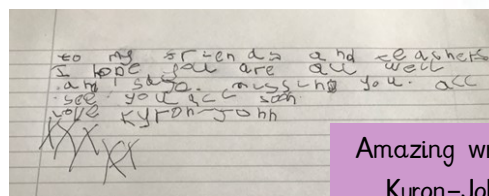 to my friends and teachers
I hope you are all well
and safe. missing you. all
see you all soon.
love Kyron-John
XXX
Amazing wr
Kyron-Joh